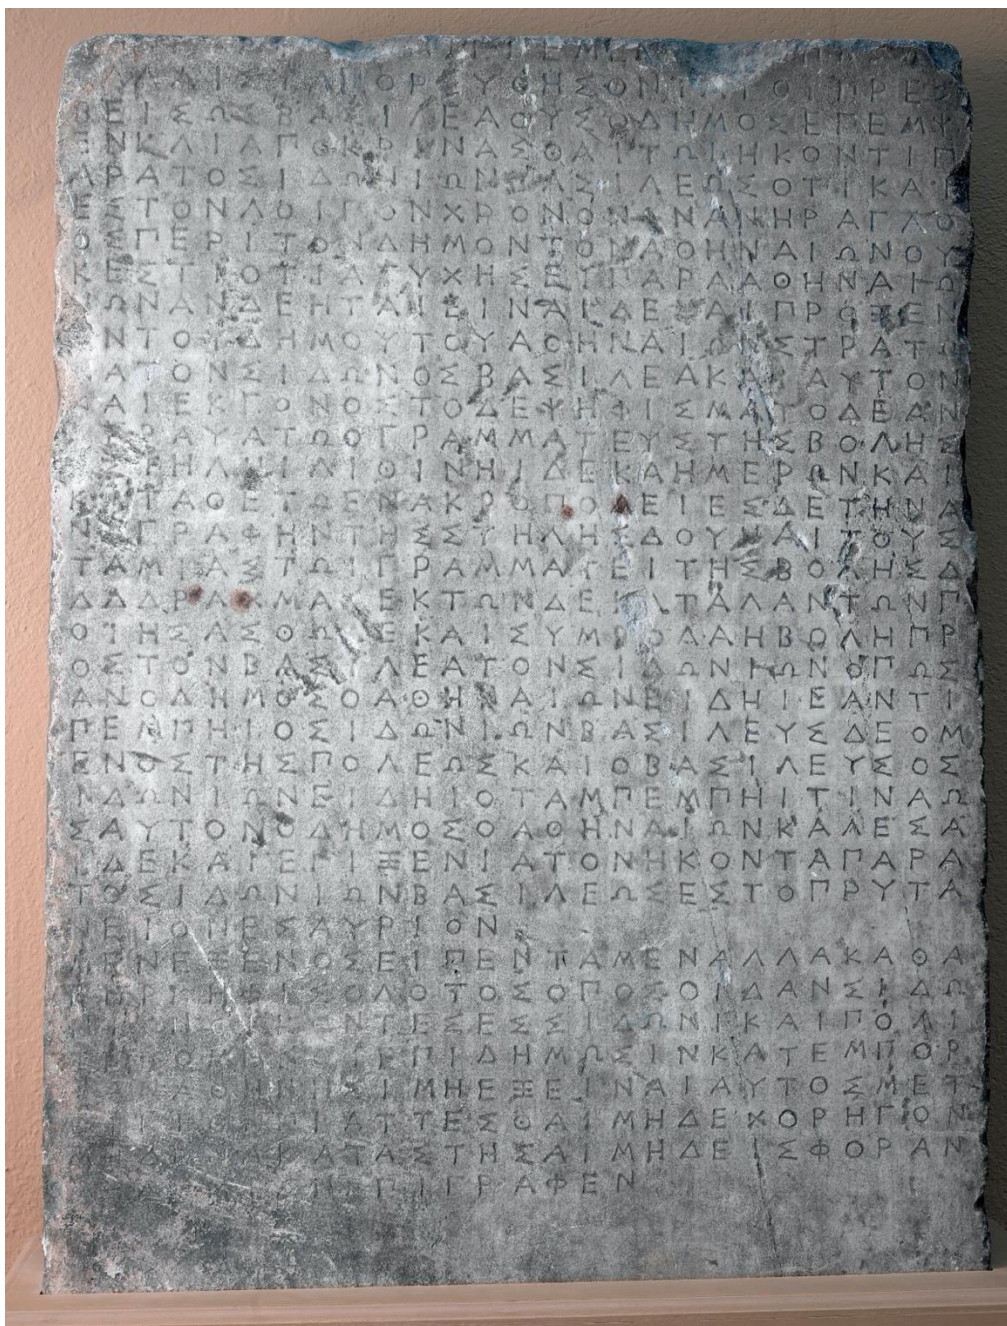 ΑΛΛΙΣΤΑ ΠΟΡΕΥΘΗΣΟΝΤΑΙ ΟΙ ΠΡΕΣ
ΒΕΙΣ ΩΣ ΒΑΣΙΛΕΑ ΟΥΣ Ο ΔΗΜΟΣ ΕΠΕΜΨ
ΕΝ ΚΑΙ ΑΠΟΚΡΙΝΑΣΘΑΙ ΤΩΙ ΗΚΟΝΤΙ Π
ΑΡΑ ΤΟ ΣΙΔΩΝΙΩΝ ΒΑΣΙΛΕΩΣ ΟΤΙ ΚΑΙ
ΕΣ ΤΟΝ ΛΟΙΠΟΝ ΧΡΟΝΟΝ ΩΝ ΑΝΗΡ ΑΓΑΘ
ΟΣ ΠΕΡΙ ΤΟΝ ΔΗΜΟΝ ΤΟΝ ΑΘΗΝΑΙΩΝ ΟΥ
Κ ΕΣΤΙ ΟΤΙ ΑΤΥΧΗΣΕΙ ΠΑΡΑ ΑΘΗΝΑΙΩ
Ν ΩΝ ΑΝ ΔΕΗΤΑΙ ΕΙΝΑΙ ΔΕ ΚΑΙ ΠΡΟΞΕΝ
ΟΝ ΤΟ ΔΗΜΟΥ ΤΟΥ ΑΘΗΝΑΙΩΝ ΣΤΡΑΤΩ
ΝΑ ΤΟΝ ΣΙΔΩΝΟΣ ΒΑΣΙΛΕΑ ΚΑΙ ΑΥΤΟΝ
ΚΑΙ ΕΚΓΟΝΟΣ ΤΟ ΔΕ ΨΗΦΙΣΜΑ ΤΟΔΕ ΑΝ
ΑΓΡΑΨΑΤΩ Ο ΓΡΑΜΜΑΤΕΥΣ ΤΗΣ ΒΟΛΗΣ
ΕΣΤΗΛΗΙ ΛΙΘΙΝΗΙ ΔΕΚΑ ΗΜΕΡΩΝ ΚΑΙ
ΚΑΤΑΘΕΤΩ ΕΝ ΑΚΡΟΠΟΛΕΙ ΕΣ ΔΕ ΤΗΝ Α
ΝΑΓΡΑΦΗΝ ΤΗΣ ΣΤΗΛΗΣ ΔΟΥΝΑΙ ΤΟΥΣ
ΤΑΜΙΑΣ ΤΩΙ ΓΡΑΜΜΑΤΕΙ ΤΗΣ ΒΟΛΗΣ Δ
ΔΔ ΔΡΑΧΜΑΣ ΕΚ ΤΩΝ ΔΕΚΑ ΤΑΛΑΝΤΩΝ Π
ΟΙΗΣΑΣΘΩ ΔΕ ΚΑΙ ΣΥΜΒΟΛΑ Η ΒΩΛΗ ΠΡ
ΟΣ ΤΟΝ ΒΑΣΙΛΕΑ ΤΟΝ ΣΙΔΩΝΙΩΝ ΟΠΩΣ
ΑΝ Ο ΔΗΜΟΣ Ο ΑΘΗΝΑΙΩΝ ΕΙΔΗΙ ΕΑΝ ΤΙ
ΠΕΜΠΗΙ Ο ΣΙΔΩΝΙΩΝ ΒΑΣΙΛΕΥΣ ΔΕΟΜ
ΕΝΟΣ ΤΗΣ ΠΟΛΕΩΣ ΚΑΙ Ο ΒΑΣΙΛΕΥΣ Ο Σ
ΙΔΩΝΙΩΝ ΕΙΔΗΙ ΟΤΑΜ ΠΕΜΠΗΙ ΤΙΝΑ Ω
Σ ΑΥΤΟΝ Ο ΔΗΜΟΣ Ο ΑΘΗΝΑΙΩΝ ΚΑΛΕΣΑ
Ι ΔΕ ΚΑΙ ΕΠΙ ΞΕΝΙΑ ΤΟΝ ΗΚΟΝΤΑ ΠΑΡΑ
ΤΟ ΣΙΔΩΝΙΩΝ ΒΑΣΙΛΕΩΣ ΕΣ ΤΟ ΠΡΥΤΑ
ΝΕΙΟΝ ΕΣ ΑΥΡΙΟΝ
ΜΕΝΕΞΕΝΟΣ ΕΙΠΕΝ ΤΑ ΜΕΝ ΑΛΛΑ ΚΑΘΑ
ΠΕΡ ΚΗΦΙΣΟΔΟΤΟΣ ΟΠΟΣΟΙ Δ ΑΝ ΣΙΔΩ
ΝΙΩΝ ΟΙΚΟΝΤΕΣ ΕΣ ΣΙΔΩΝΙ ΚΑΙ ΠΟΛΙ
ΕΠΙΔΗΜΩΣΙΝ ΚΑΤ ΕΜΠΟΡ
ΜΗ ΕΞΕΙΝΑΙ ΑΥΤΟΣ ΜΕΤ
ΠΡΑΤΤΕΣΘΑΙ ΜΗΔΕ ΧΟΡΗΓΟΝ
ΚΑΤΑΣΤΗΣΑΙ ΜΗΔ ΕΙΣΦΟΡΑΝ
ΕΠΙΓΡΑΦΕΝ